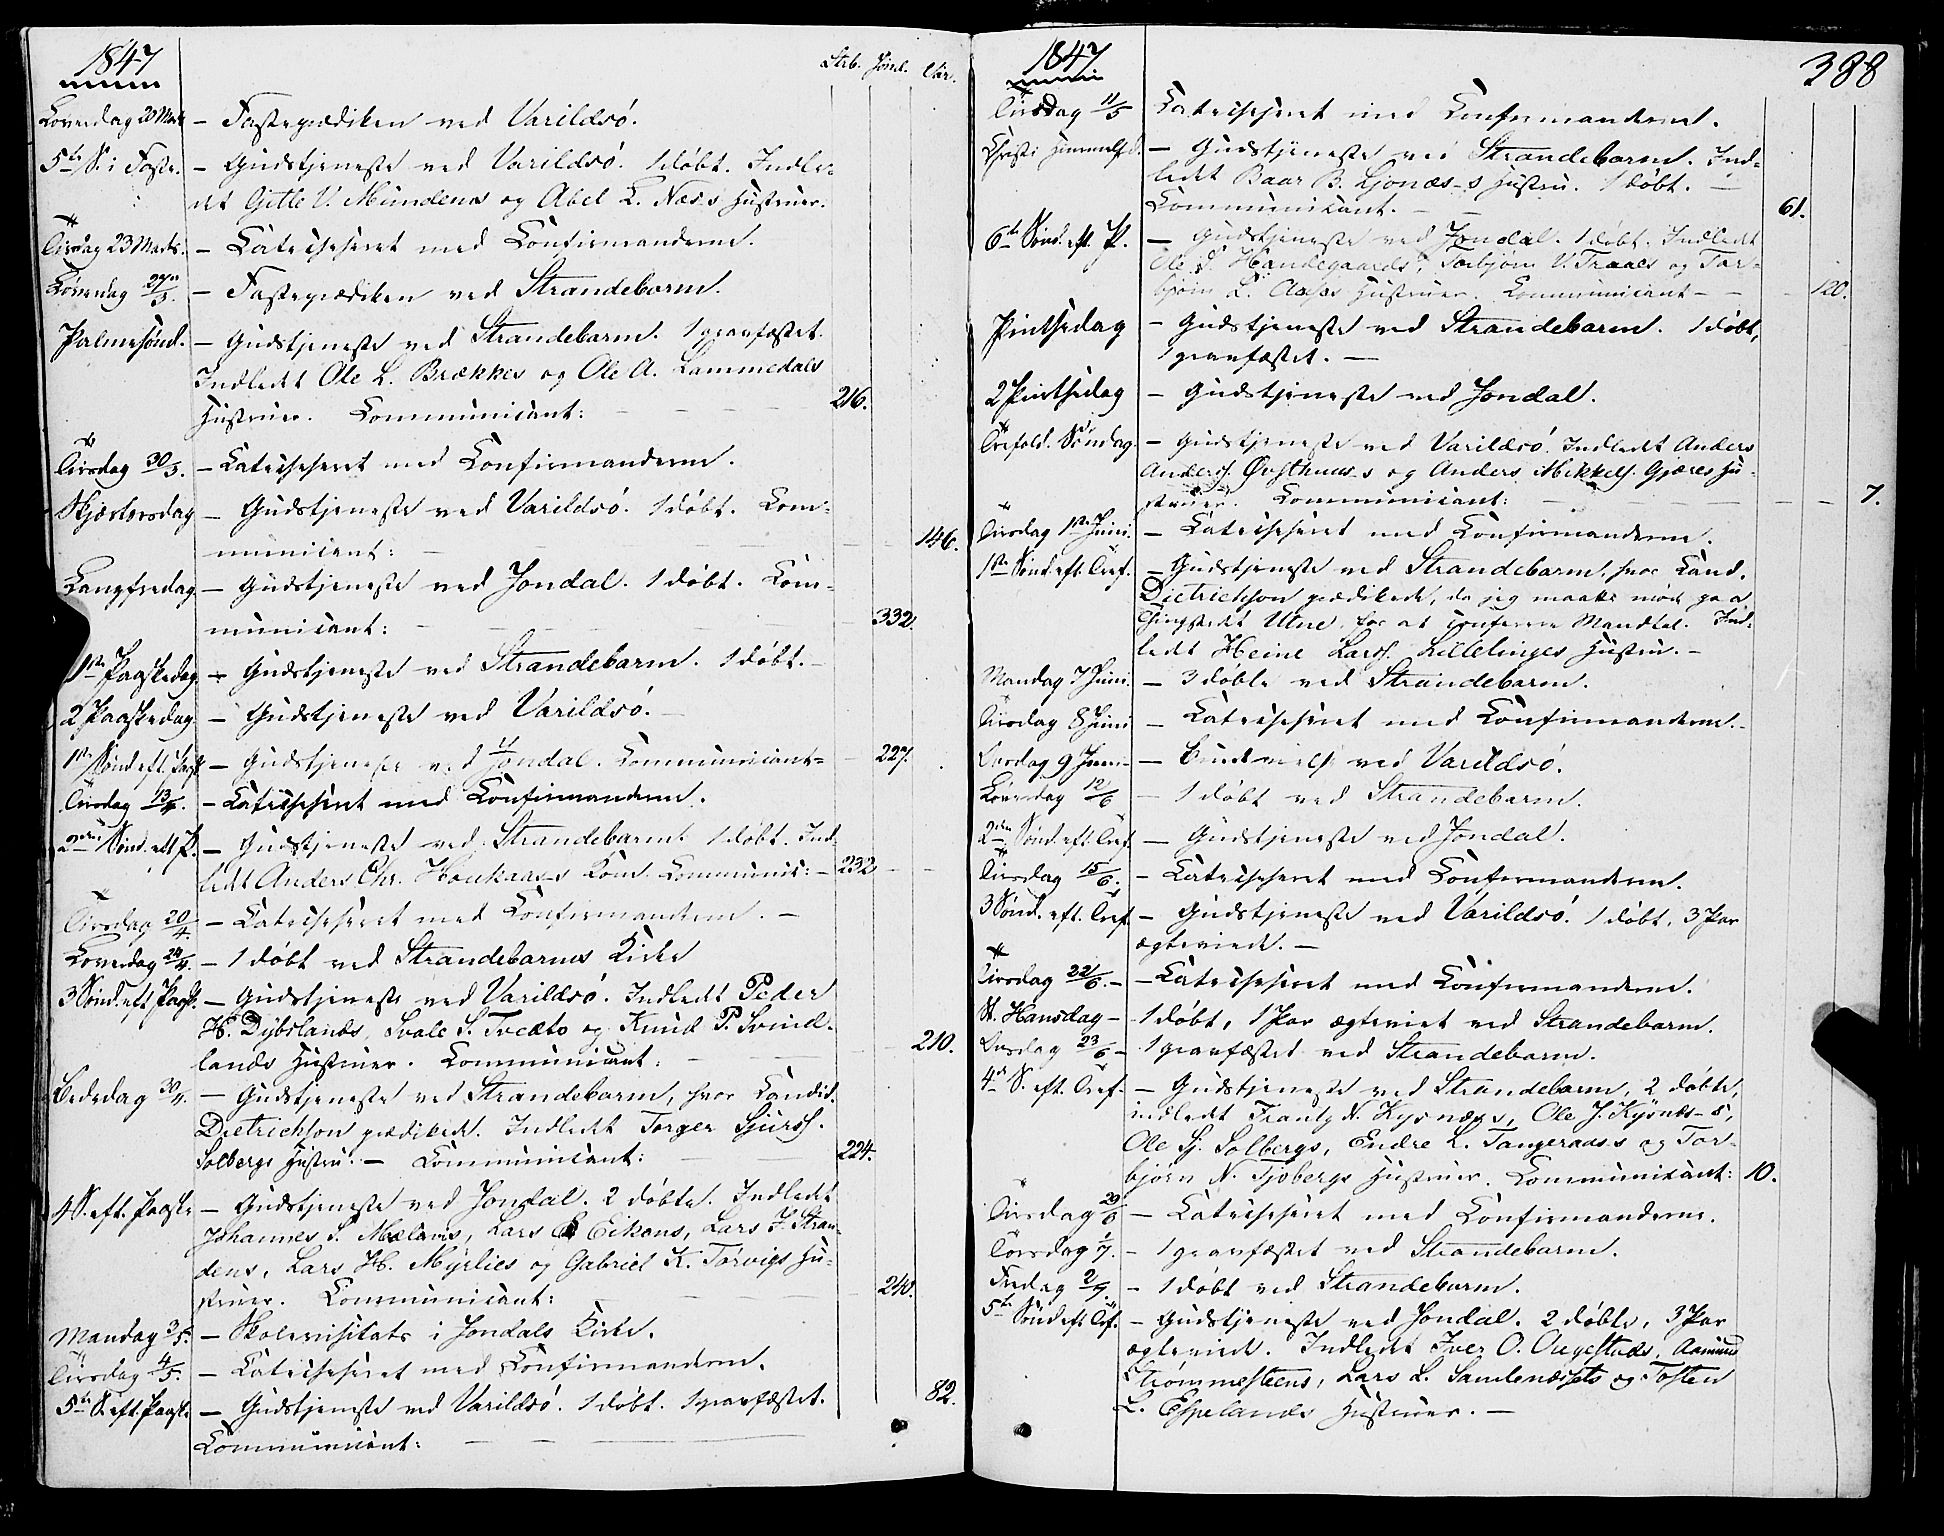 1847
Strb. Jond. Var.
Løverdag 20 Marts – Fasteprædiken ved Varildsö.
5te S. i Faste. – Gudstjeneste ved Varildsö. 1 döbt. Indle-
det Gitle V. Mundens og Abel L. Næs-s Hustruer.
Tirsdag 23 Marts. – Catechiseret med Confirmanderne.
Løverdag 27/3. – Fasteprædiken ved Strandebarm.
Palmesönd. – Gudstjeneste ved Strandebarm. 1 gravfæstet.
Indledt Ole L. Brækkes og Ole A. Lammedals
Hustruer. Communicant: – – – 216.
Tirsdag 30/3. – Catechiseret med Confirmanderne.
Skjærtorsdag – Gudstjeneste ved Varildsö. 1 döbt. Com-
municant: – – – 146.
Langfredag – Gudstjeneste ved Jondal. 1 döbt. Com-
municant: – – – 332.
1ste Paaskedag – Gudstjeneste ved Strandebarm. 1 döbt. –
2 Paaskedag – Gudstjeneste ved Varildsö. –
1ste Sönd. eft. Paaske – Gudstjeneste ved Jondal. Communicant – 227.
Tirsdag 13/4. – Catechiseret med Confirmanderne.
2den Sönd. eft P. – Gudstjeneste ved Strandebarm. 1 döbt. Ind-
ledt Anders Chr. Haukaas-s Kone. Communic: – 232
Tirsdag 20/4 – Catechiseret med Confirmanderne. –
Löverdag 24/4. – 1 döbt ved Strandebarms Kirke
3 Sönd. eft. Paask. – Gudstjeneste ved Varildsö. Indledt Peder
H. Dybslands, Svale S. Tveite og Knud P. Svind-
lands Hustruer. Communicant: – – 210.
Bededag 30/4. – Gudstjeneste ved Strandebarm, hvor Candid.
Dietrichson prædikede. Indledt Torger Sjurss.
Solbergs Hustru. – Communicant: – – 224.
4 S. eft. Paaske – Gudstjeneste ved Jondal. 2 döbte. Indledt
Johannes S. Mælands, Lars Eikens, Lars J. Stran-
dens, Lars H. Myrlies og Gabriel K. Törvigs Hu-
struer. Communicant: – – 240.
Mandag 3/5. – Skolevisitats i Jondals Kirke.
Tirsdag 4/5. – Catechiseret med Confirmanderne.
5te S. eft. Paaske – Gudstjeneste ved Varildsö. 1 döbt. 1 gravfæstet. 82.
Communicant: – – –
1847
388
Tirsdag 11/5 Catechiseret med Confirmanderne.
Christi Himmelfd. – Gudstjeneste ved Strandebarm. Ind-
ledt Baar B. Ljonæs-s Hustru. 1 döbt. –
Communicant. – – 61.
6te Sönd. eft. P. – Gudstjeneste ved Jondal. 1 döbt. Indledt
Ole S. Handegaards, Torbjörn V. Traaes og Tor-
björn L. Aases Hustruer. Communicant – – 120.
Pintsedag – Gudstjeneste ved Strandebarm. 1 döbt,
1 gravfæstet. –
2 Pintsedag – Gudstjeneste ved Jondal.
Trefold. Söndag. – Gudstjeneste ved Varildsö. Indledt Anders
Anderss. Östhuus-s og Anders Mikkels. Gjæres Hu-
struer. Communicant: – – – 7.
Tirsdag 1ste Juni. – Catechiseret med Confirmanderne.
1ste Sönd. eft. Tref. – Gudstjeneste ved Strandebarm, hvor Cand.
Dietrichson prædikede, da jeg maatte möde paa
Thingstedet Utne for at conferere Mandtal. Ind-
ledt Heine Larss. Lillelinges Hustru. –
Mandag 7 Juni. – 3 döbte ved Strandebarm.
Tirsdag 8 Juni – Catechiseret med Confirmanderne. –
Onsdag 9 Juni – Brudevielse ved Varildsö.
Löverdag 12/6 – 1 döbt ved Strandebarm.
2den Sönd. eft. Tref. – Gudstjeneste ved Jondal.
Tirsdag 15/6. – Catechiseret med Confirmanderne.
3 Sönd. eft. Tref – Gudstjeneste ved Varildsö. 1 döbt, 3 Par
ægteviede. –
Tirsdag 22/6. – Catechiseret med Confirmanderne.
St. Hansdag – 1 döbt, 1 Par ægteviet ved Strandebarm.
Onsdag 23/6 – 1 gravfæstet ved Strandebarm.
4de S. eft. Tref. – Gudstjeneste ved Strandebarm, 2 döbte,
indledt Frantz N. Kysnæs-s, Ole J. Kysnæs-s,
Ole Sj. Solbergs, Endre L. Tangeraas-s og Tor-
björn N. Tjobergs Hustruer. Communicant: 10.
Tirsdag 29/6 – Catechiseret med Confirmanderne.
Torsdag 1/7. – 1 gravfæstet ved Strandebarm.
Fredag 2/7. – 1 döbt ved Strandebarm.
5te Sönd eft Tref. – Gudstjeneste ved Jondal. 2 döbte, 3 Par
ægteviede. Indledt Iver O. Augestads, Aamund
Strömmesteens, Lars L. Samlenæssets og Tosten
L. Espelands Hustruer. –